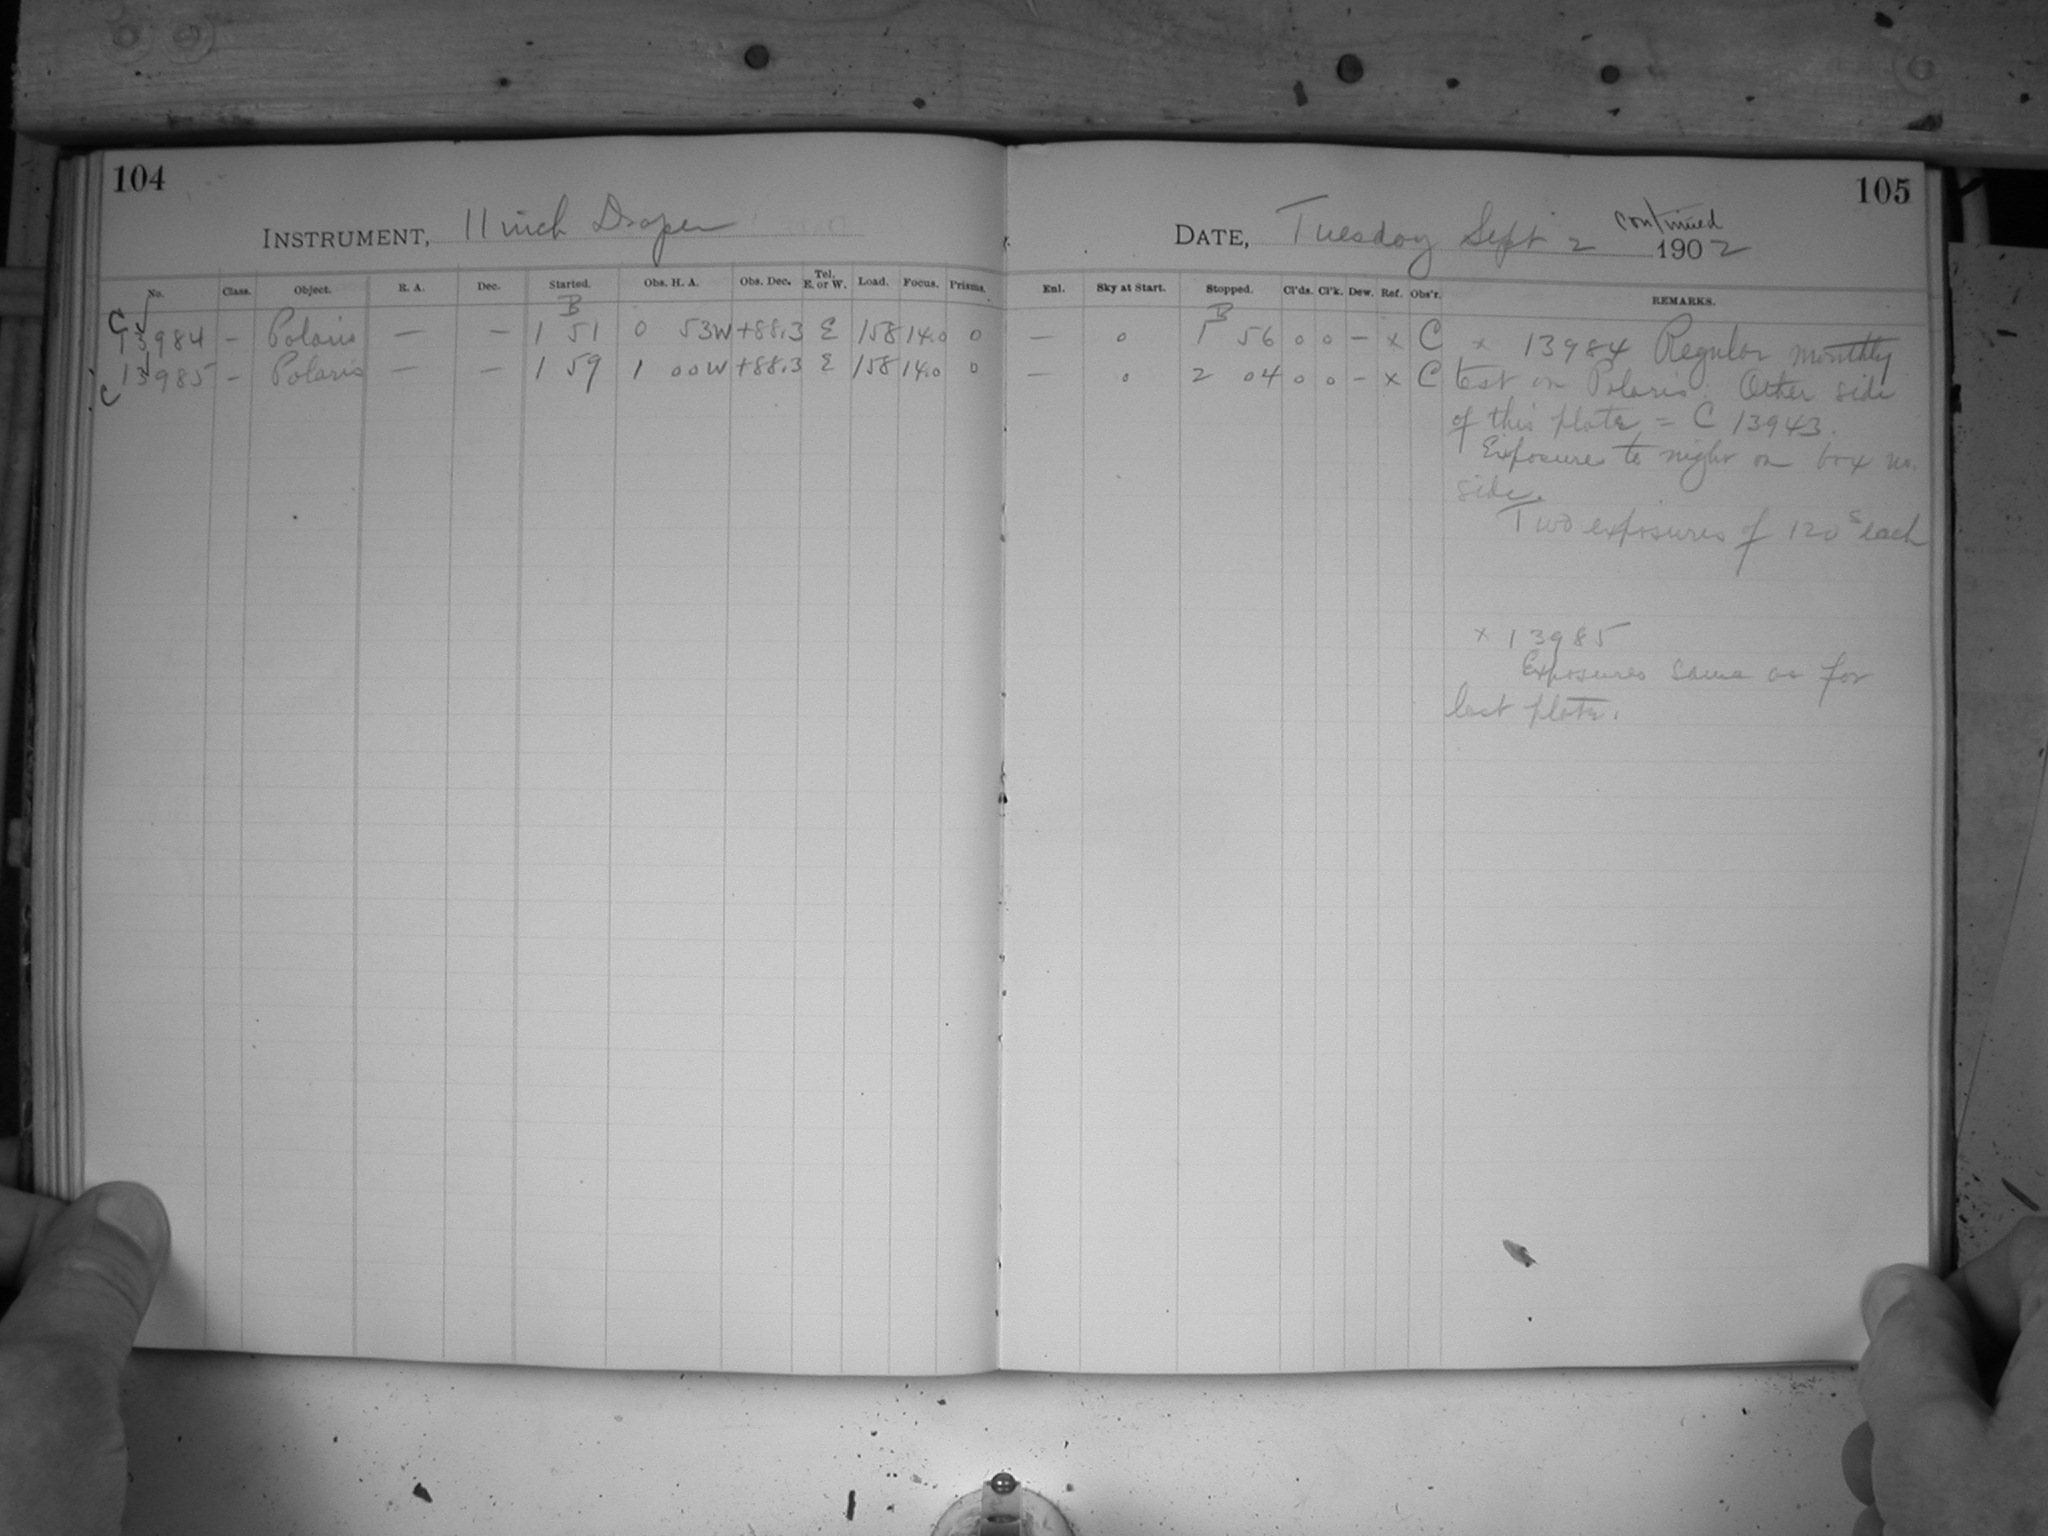 104
INSTRUMENT, 11 inch Draper
No. Class. Object. R. A. Dec. Started. Obs. H. A. Obs. Dec. Tel. E. or W. Load. Focus. Prisms.
B
C 13984 – Polaris — — 1 51 0 53W +88.3 E 158 14.0 0
C 13985 – Polaris — — 1 59 1 00W +88.3 E 158 14.0 0
105
continued
DATE, Tuesday Sept 2 1902
Enl. Sky at Start. Stopped. Cl'ds. Cl'k. Dew. Ref. Obs'r. REMARKS.
B
— 0 1 56 0 0 – x C x 13984 Regular monthly
— 0 2 04 0 0 – x C test on Polaris. Other side
of this plate = C 13943.
Exposures to night on box no.
side.
Two exposures of 120s each
x 13985
Exposures same as for
last plate.